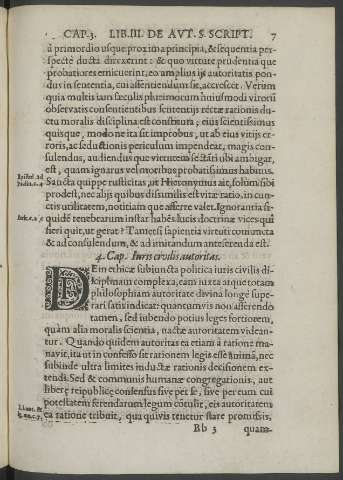 CAP. 3. LIB. III. DE AVT. S. SCRIPT. 7
à primordio usque proxima principia, & sequentia per-
specte ducta dixerint: & quo virtute prudentia que
probatiores emicuerint, eo amplius ijs autoritatis pon-
dus in sententia, cui assentiendum sit, accrescet. Verum
quia multis iam sæculis plurimorum huiusmodi virorū
observatis consentientibus scientijs rectæ rationis du-
ctu moralis disciplina est constituta, eius scientissimus
quisque, modo ne ita sit improbus, ut ab eius vitijs er-
roris, ac seductionis periculum impendeat, magis con-
sulendus, audiendusque virtutem sectanti sibi ambigat,
est, quam ignarus vel moribus probatissimus habitus.
Sancta quippe rusticitas, ut Hieronymus ait, solum sibi
prodest, nec alijs quibus dissimilis est vitæ ratio, in cun-
ctis utilitatem, notitiam que afferre valet. Ignorantia si-
quidē tenebrarum instar habēs lucis doctrinæ vices qui
fieri quit, ut gerat? Tametsi sapientia virtuti coniuncta
& ad consulendum, & ad imitandum anteferenda est.
4. Cap. Iuris civilis autoritas.
DEin ethicæ subiuncta politica iuris civilis di-
sciplinam complexa, eam iuxta atque totam
philosophiam autoritate divina longè supe-
rari satis indicat: quantumvis non asserendo
tamen, sed iubendo potius leges fortiorem,
quàm alia moralis scientia, nactæ autoritatem videan-
tur. Quando quidem autoritas ea etiam à ratione ma-
navit, ita ut in confesso sit rationem legis esse animā, nec
subinde ultra limites inductæ rationis decisionem ex-
tendi. Sed & communis humanæ congregationis, aut
liberę reipublicę consensus sive per se, sive per eum cui
potestatem ferendarum legum cōtulit, eis autoritatem
ea ratione tribuit, qua quivis tenetur stare promissis,
Bb 3 quam-